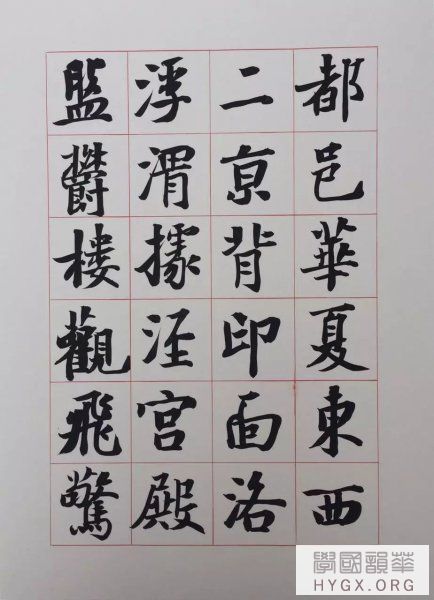 都邑華夏東西
二亰背印面洛
浮渭據涇宮殿
監鬱樓觀飛驚
學國韻華
HYGX.ORG